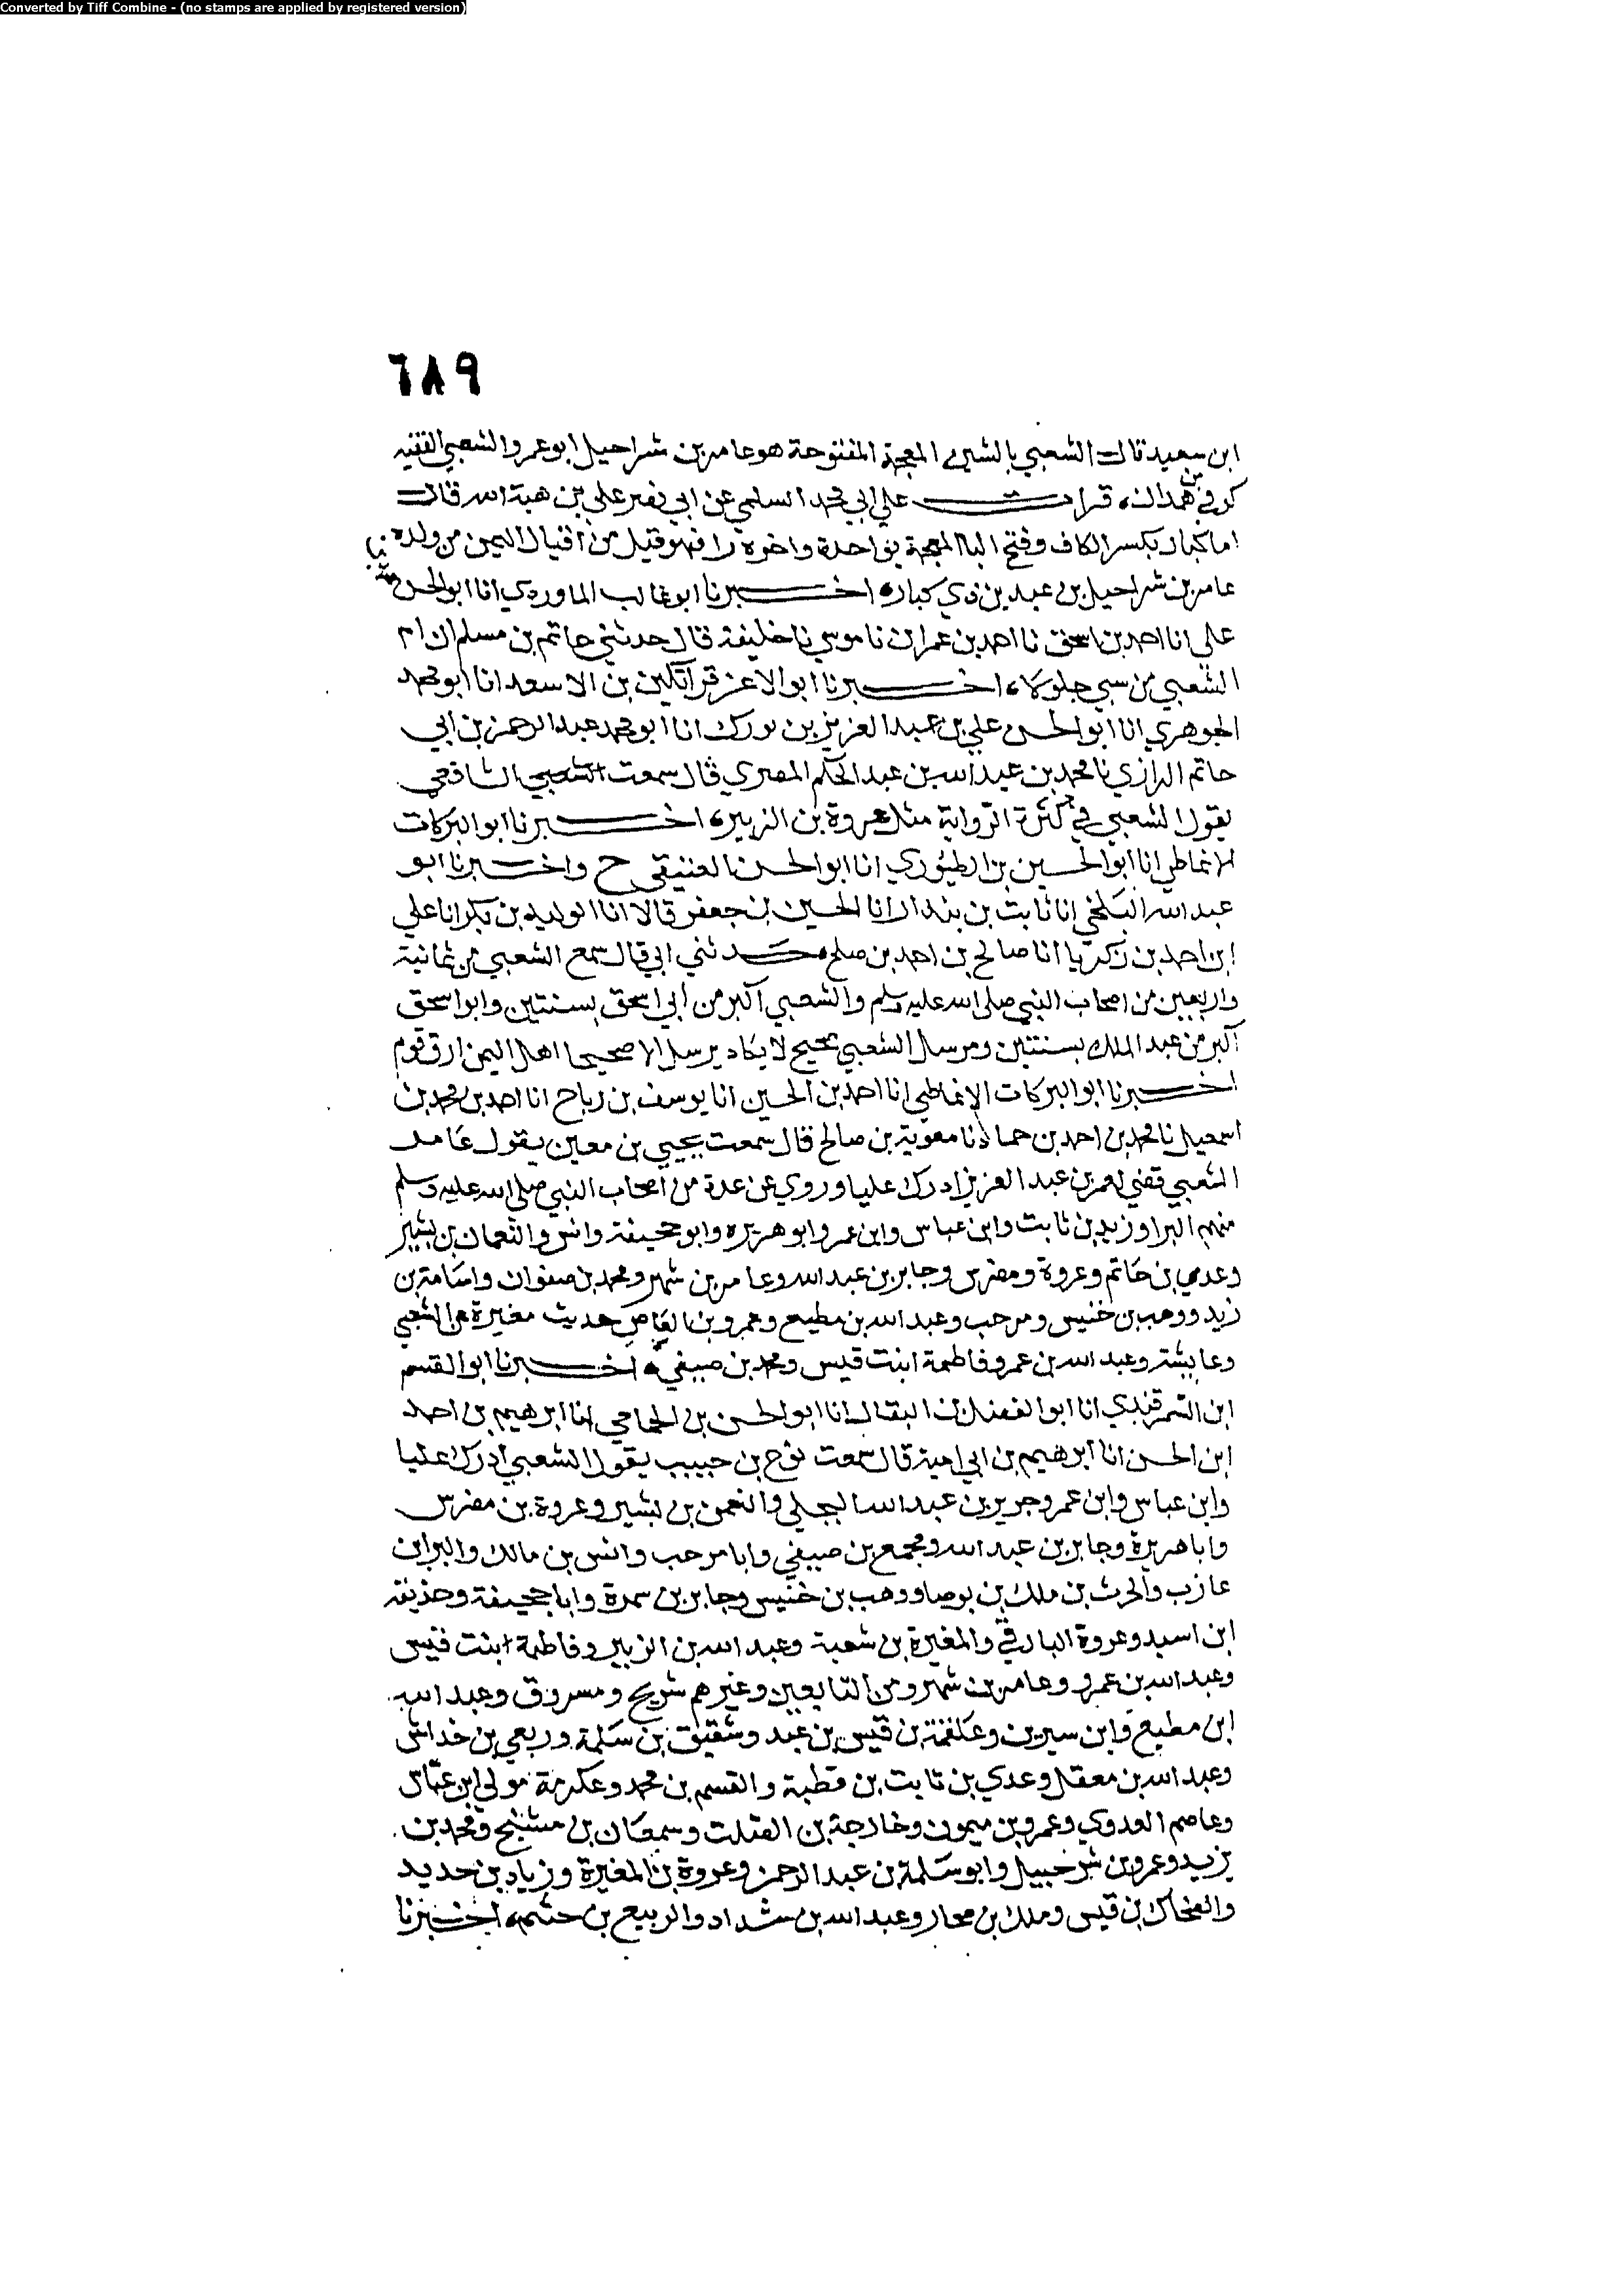 Converted by Tiff Combine - (no stamps are applied by registered version)
٦٨٩
ابن سعيد قال الشعبي بالشين المعجمة المفتوحة هو عامر بن شراحيل ابو عمرو الشعبي الفقيه
كوفي من همدان، قرات على ابي محمد السلمي عن ابي نصر علي بن هبة الله قال
اما كبار بكسر الكاف وفتح الباء المعجمة بواحدة واخره را فهو قيل من اقيال اليمن من ولده
عامر بن شراحيل بن عبد بن ذي كبار، اخبرنا ابو غالب الماوردي انا ابو الحسن
علي انا احمد بن اسحق نا احمد بن عمران نا موسى نا خليفة قال حدثني حاتم بن مسلم ان ام
الشعبي من سبي جلولاء، اخبرنا ابو الاعز قراتكين بن الاسعد انا ابو محمد
الجوهري انا ابو الحسن علي بن عبد العزيز بن مردك انا ابو محمد عبد الرحمن بن ابي
حاتم الرازي نا محمد بن عبد الله بن عبد الحكم المصري قال سمعت الشافعي
يقول الشعبي في كثرة الرواية مثل عروة بن الزبير، اخبرنا ابو البركات
الانماطي انا ابو الحسين بن الطيوري انا ابو الحسن العتيقي ح واخبرنا ابو
عبد الله البلخي انا ثابت بن بندار انا الحسين بن جعفر قالا انا الوليد بن بكر انا علي
ابن احمد بن زكريا انا صالح بن احمد بن صلح، حدثني ابي قال سمع الشعبي من ثمانية
واربعين من اصحاب النبي صلى الله عليه وسلم والشعبي اكبر من ابي اسحق بسنتين وابو اسحق
اكبر من عبد الملك بسنتين ومرسل الشعبي صحيح لا يكاد يرسل الا صحيحا اهل اليمن ارق قوم
اخبرنا ابو البركات الانماطي انا احمد بن الحسين انا يوسف بن رباح انا احمد بن محمد بن
اسمعيل نا محمد بن احمد بن حماد نا معوية بن صالح قال سمعت يحيي بن معين يقول عامر
الشعبي قضى لعمر بن عبد العزيز ادرك عليا وروي عن عدة من اصحاب النبي صلى الله عليه وسلم
منهم البرا وزيد بن ثابت وابن عباس وابن عمر وابو هريرة وابو جحيفة وانس والنعمان بن بشير
وعدي بن حاتم وعروة ومضرس وجابر بن عبد الله وعامر بن شهر ومحمد بن صفوان واسامة بن
زيد ووهب بن خنيس ومرحب وعبد الله بن مطيع وعمرو بن العاص حديث مغيرة عن الشعبي
وعايشة وعبد الله بن عمرو فاطمة ابنت قيس ومحمد بن صيفي، اخبرنا ابو القسم
ابن السمرقندي انا ابو الفضل بن البقال انا ابو الحسن بن الحمامي انا ابرهيم بن احمد
ابن الحسن انا ابرهيم بن ابي امية قال سمعت نوح بن حبيب يقول الشعبي ادرك عليا
وابن عباس وابن عمر وجرير بن عبد الله البجلي والنعمن بن بشير وعروة بن مضرس
وابا هريرة وجابر بن عبد الله ومجمع بن صيفي وابا مرحب وانس بن مالك والبرا بن
عازب والحرث بن ملك بن برصا ووهب بن خنيس وجابر بن سمرة وابا جحيفة وحذيفة
ابن اسيد وعروة البارقي والمغيرة بن شعبة وعبد الله بن الزبير وفاطمة ابنت قيس
وعبد الله بن عمرو وعامر بن شهر ومن التابعين وغيرهم شريح ومسروق وعبد الله
ابن مطيع وابن سيرين وعلقمة بن قيس بن عبد وشقيق بن سلمة وربعي بن خداش
وعبد الله بن معقل وعدي بن ثابت بن قطبة والقسم بن محمد وعكرمة مولى ابن عباس
وعاصم العدوي وعمرو بن ميمون وخارجة بن الصلت وسمعان بن مشنج ومحمد بن
يزيد وعمرو بن شرحبيل وابو سلمة بن عبد الرحمن وعروة بن المغيرة وزياد بن حديد
والضحاك بن قيس وملك بن صحار وعبد الله بن شداد والربيع بن خثيم، اخبرنا